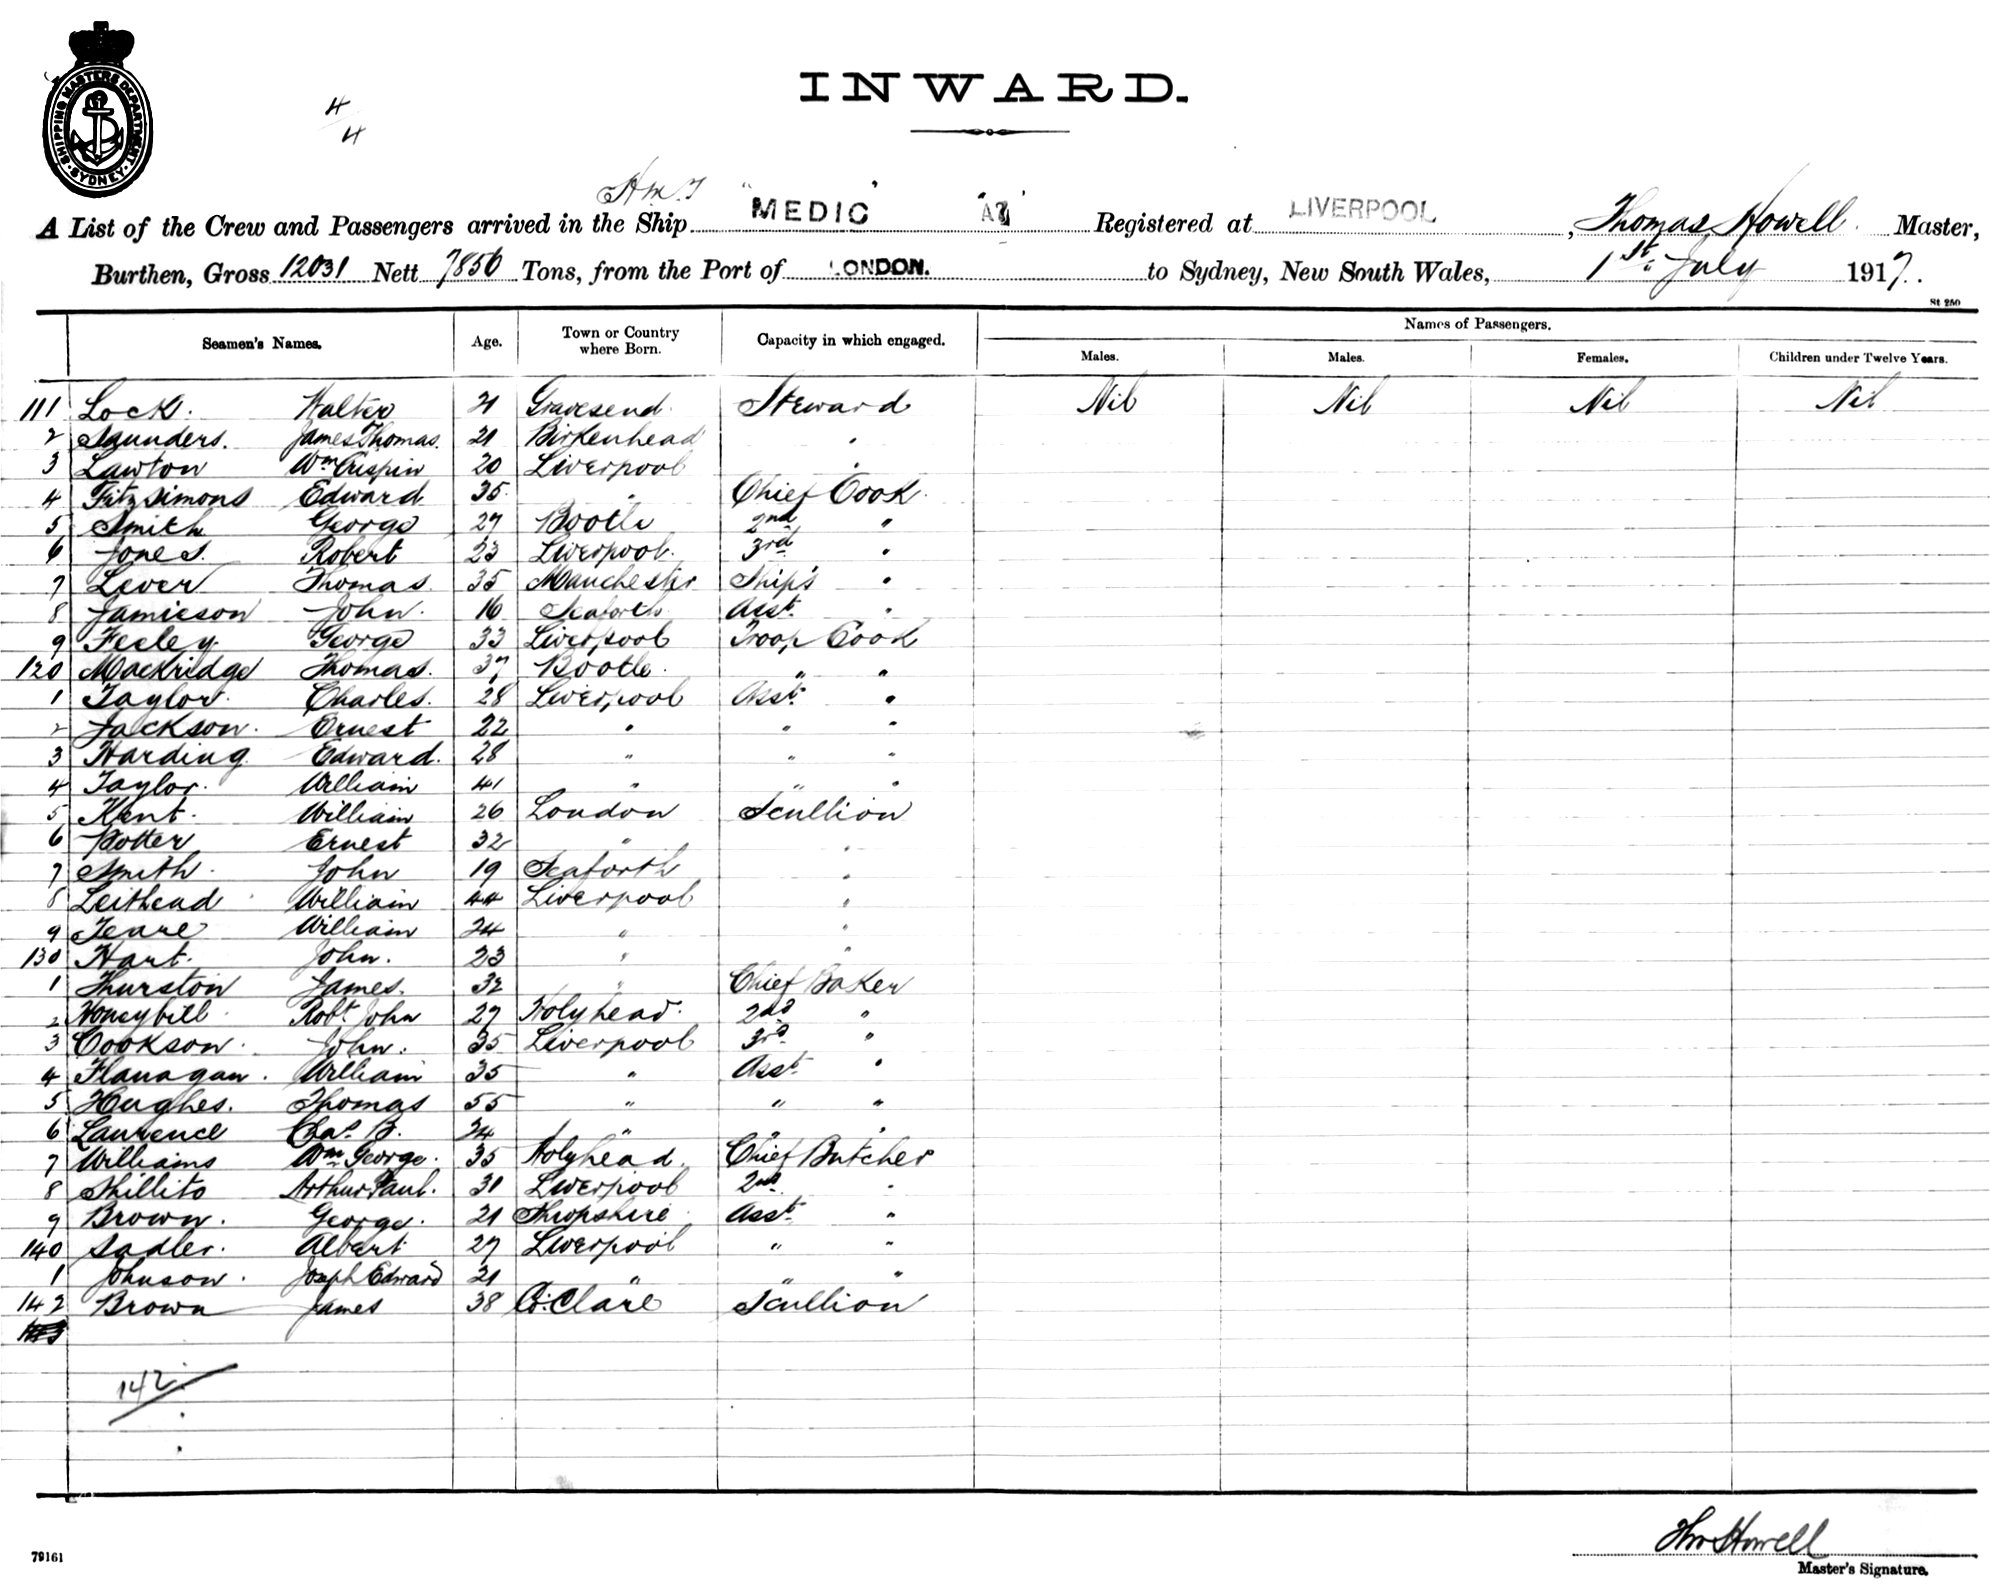 SHIPPING MASTERS DEPARTMENT
SYDNEY
4/4
INWARD.
H.M.T "MEDIC" "A7"
A List of the Crew and Passengers arrived in the Ship MEDIC Registered at LIVERPOOL, Thomas Howell Master,
Burthen, Gross 12031 Nett 7856 Tons, from the Port of LONDON. to Sydney, New South Wales, 1st July 1917.
St 250
Seamen's Names. Age. Town or Country where Born. Capacity in which engaged. Names of Passengers.
Males. Males. Females. Children under Twelve Years.
111 Lock. Walter 21 Gravesend. Steward Nil Nil Nil Nil
2 Saunders. James Thomas. 21 Birkenhead "
3 Lawton Wm Crispin 20 Liverpool "
4 Fitzsimons Edward 35 " Chief Cook.
5 Smith George 27 Bootle 2nd "
6 Jones. Robert 23 Liverpool. 3rd "
7 Lever Thomas. 35 Manchester Ship's "
8 Jamieson John. 16 Seaforth Asst. "
9 Feeley George 33 Liverpool Troop Cook
120 Mackridge Thomas. 37 Bootle. " "
1 Taylor. Charles. 28 Liverpool Asst. "
2 Jackson. Ernest 22 " " "
3 Harding Edward. 28 " " "
4 Taylor. William 41 " " "
5 Kent. William 26 London Scullion
6 Potter Ernest 32 " "
7 Smith. John 19 Seaforth "
8 Leithead William 44 Liverpool "
9 Teare William 24 " "
130 Hart. John. 23 " "
1 Thurston James. 32 " Chief Baker
2 Honeybill Robt John 27 Holyhead. 2nd "
3 Cookson. John. 35 Liverpool 3rd "
4 Flanagan. William 35 " Asst. "
5 Hughes. Thomas 55 " " "
6 Laurence Chas. B. 24 " " "
7 Williams Wm George. 35 Holyhead. Chief Butcher
8 Shillito Arthur Paul. 31 Liverpool 2nd "
9 Brown. George. 21 Shropshire Asst. "
140 Sadler. Albert 27 Liverpool " "
1 Johnson. Joseph Edward 21 " " "
142 Brown James 38 Co. Clare Scullion
142
Thos Howell
Master's Signature.
79161